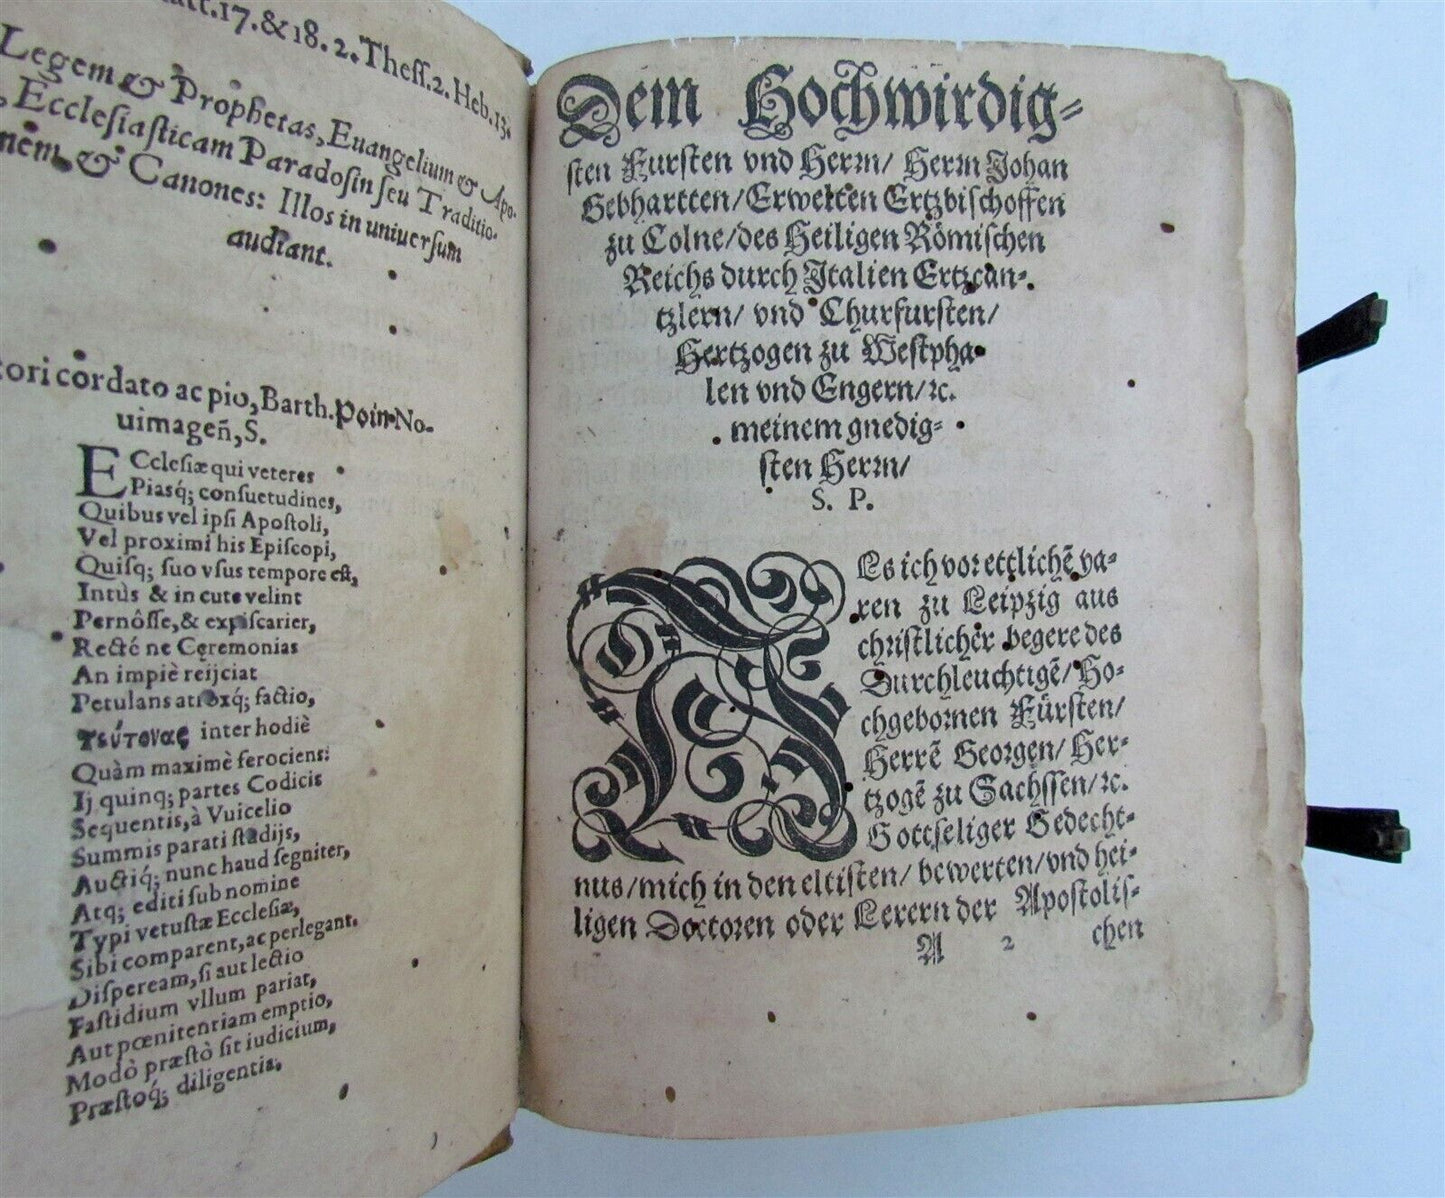 att.17.&18. 2. Theſſ.2. Heb.13.
Legem & Prophetas, Euangelium & Apo-
, Eccleſiaſticam Paradoſin ſeu Traditio-
nem, & Canones: Illos in uniuerſum
audiant.
tori cordato ac pio, Barth. Poin No-
uimageñ, S.
ECcleſiæ qui veteres
Piasq́; conſuetudines,
Quibus vel ipſi Apoſtoli,
Vel proximi his Epiſcopi,
Quiſq; ſuo vſus tempore eſt,
Intùs & in cute velint
Pernôſſe, & expiſcarier,
Recté ne Ceremonias
An impiè reijciat
Petulans atroxq́; factio,
τεύτονας inter hodiè
Quàm maximè ferociens:
Ij quinq; partes Codicis
Sequentis, à Vuicelio
Summis parati ſtadijs,
Auctiq́; nunc haud ſegniter,
Atq; editi ſub nomine
Typi vetuſtæ Eccleſiæ,
Sibi comparent, ac perlegant.
Diſpeream, ſi aut lectio
Faſtidium vllum pariat,
Aut pœnitentiam emptio,
Modò præſtò ſit iudicium,
Præſtoq́; diligentia.
Dem Hochwirdig-
ſten Furſten vnd Herrn/ Herrn Johan
Gebhartten/ Erwelten Ertzbiſchoffen
zu Colne/ des Heiligen Römiſchen
Reichs durch Italien Ertzcan-
tzlern/ vnd Churfurſten/
Hertzogen zu Weſtpha-
len vnd Engern/ ꝛc.
meinem gnedig-
ſten Herrn/
S. P.
ALs ich vor ettlichẽ ya-
ren zu Leipzig aus
chriſtlicher begere des
Durchleuchtigẽ/ Ho-
chgebornen Fürſten/
Herrẽ Georgen/ Her-
tzogẽ zu Sachſſen/ ꝛc.
Gottſeliger Gedecht-
nus/ mich in den eltiſten/ bewerten/ vnd hei-
ligen Doctoren oder Lerern der Apoſtoliſ-
A 2 chen